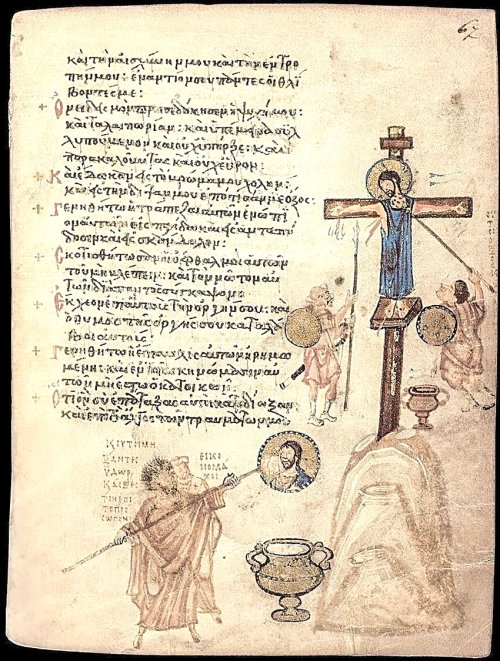 καὶ τὴν αἰσχύνην μου καὶ τὴν ἐντρο
πήν μου: ἐναντίον σου πάντες οἱ θλί
βοντές με:
Ὀνειδισμὸν προσεδόκησεν ἡ ψυχή μου:
καὶ ταλαιπωρίαν: καὶ ὑπέμεινα συλ
λυπούμενον καὶ οὐχ ὑπῆρξε: καὶ
παρακαλοῦντας καὶ οὐχ εὗρον:
Καὶ ἔδωκαν εἰς τὸ βρῶμά μου χολήν:
καὶ εἰς τὴν δίψαν μου ἐπότισάν με ὄξος:
Γενηθήτω ἡ τράπεζα αὐτῶν ἐνώπι
ον αὐτῶν εἰς παγίδα καὶ εἰς ἀνταπό
δοσιν καὶ εἰς σκάνδαλον:
Σκοτισθήτωσαν οἱ ὀφθαλμοὶ αὐτῶν
τοῦ μὴ βλέπειν: καὶ τὸν νῶτον αὐ
τῶν διὰ παντὸς σύγκαμψον:
Ἔκχεον ἐπ' αὐτοὺς τὴν ὀργήν σου: καὶ
ὁ θυμὸς τῆς ὀργῆς σου καταλά
βοι αὐτούς:
Γενηθήτω ἡ ἔπαυλις αὐτῶν ἠρημω
μένη: καὶ ἐν τοῖς σκηνώμασιν αὐ
τῶν μὴ ἔστω ὁ κατοικῶν:
Ὅτι ὃν σὺ ἐπάταξας αὐτοὶ κατεδίωξαν:
καὶ ἐπὶ τὸ ἄλγος τῶν τραυμάτων μου
ΞΑΝΤΕΣ
ΥΔΩΡ
ΤΟΝ ΕΠΙ
ΕΙΚΟ
ΝΟΜΑ
ΧΟΙ